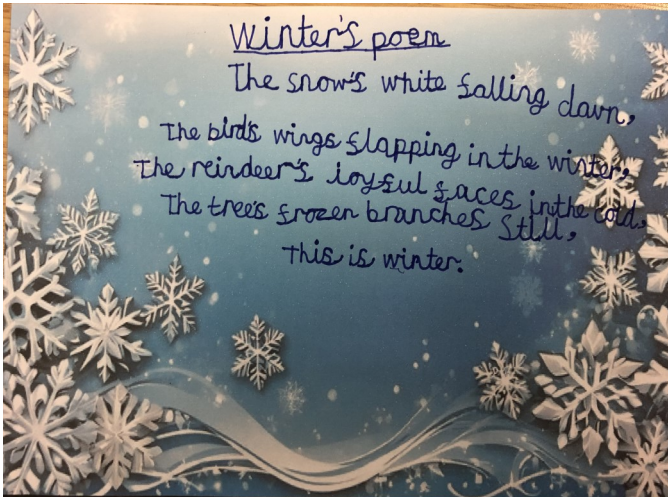 Winter's poem
The snow's white falling down,
The bird's wings flapping in the winter,
The reindeer's joyful faces in the cold,
The tree's frozen branches still,
This is winter.